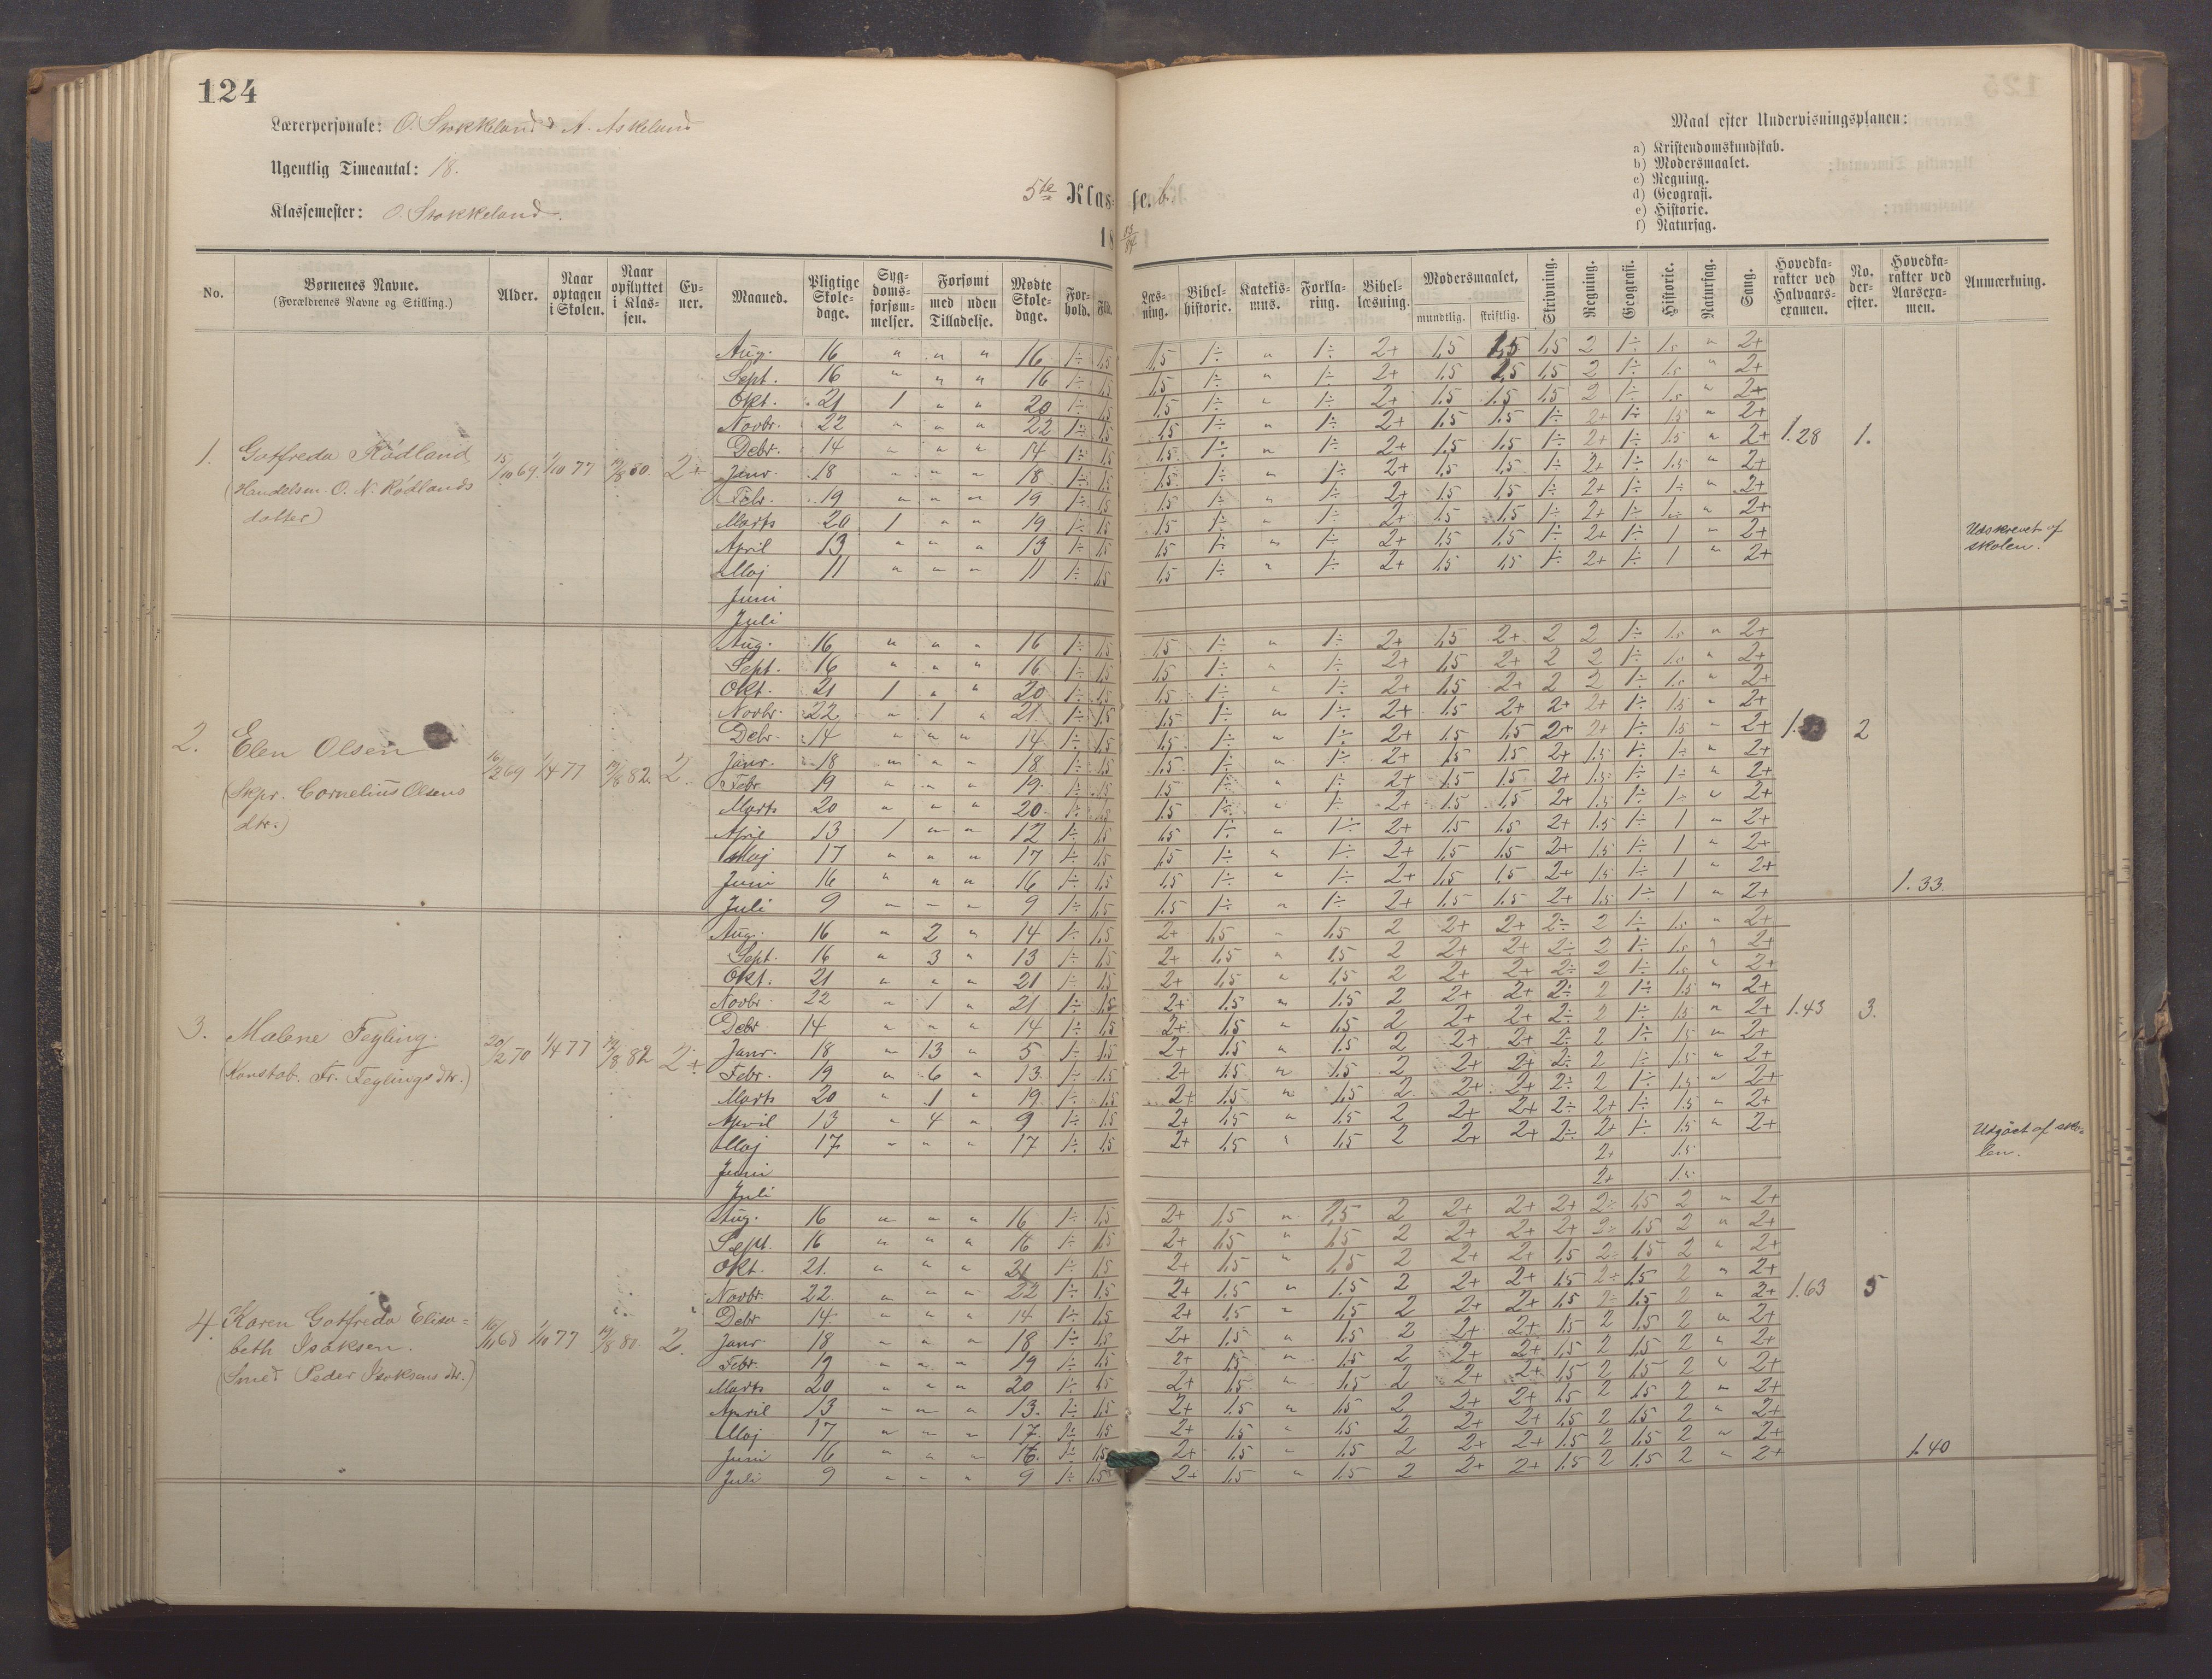 124
Lærerpersonale: O. Stokkeland & A. Askeland
Ugentlig Timeantal: 18.
Klassemester: O. Stokkeland.
5te Klasse. b.
18 83/84
Maal efter Undervisningsplanen:
a) Kristendomskundskab.
b) Modersmaalet.
c) Regning.
d) Geografi.
e) Historie.
f) Naturfag.
No. | Børnenes Navne. (Forældrenes Navne og Stilling.) | Alder. | Naar optagen i Skolen. | Naar opflyttet i Klassen. | Evner. | Maaned. | Pligtige Skoledage. | Sygdomsforsømmelser. | Forsømt med Tilladelse. | uden Tilladelse. | Mødte Skoledage. | Forhold. | Flid. | Læsning. | Bibelhistorie. | Katekismus. | Forklaring. | Bibellæsning. | Modersmaalet, mundtlig. | skriftlig. | Skrivning. | Regning. | Geografi. | Historie. | Naturfag. | Sang. | Hovedkarakter ved Halvaarsexamen. | No. derefter. | Hovedkarakter ved Aarsexamen. | Anmærkning.
1. Gotfreda Rödland
(Handelsm. O. N. Rödlands
datter)
15/10 69. 1/10 77 2+
Aug. 16 " " " 16 1÷ 1,5 1,5 1÷ " 1÷ 2+ 1,5 1,5 1,5 2 1÷ 1,5 " 2+
Sept. 16 " " " 16 1÷ 1,5 1,5 1÷ " 1÷ 2+ 1,5 1,5 1,5 2 1÷ 1,5 " 2+
Okt. 21 1 " " 20 1÷ 1,5 1,5 1÷ " 1÷ 2+ 1,5 1,5 1,5 2 1÷ 1,5 " 2+
Novbr. 22 " " " 22 1÷ 1,5 1,5 1÷ " 1÷ 2+ 1,5 1,5 1÷ 2+ 1÷ 1,5 " 2+
Debr. 14 " " " 14 1÷ 1,5 1,5 1÷ " 1÷ 2+ 1,5 1,5 1÷ 2+ 1÷ 1,5 " 2+ 1.28 1.
Janr. 18 " " " 18 1÷ 1,5 1,5 1÷ " 1÷ 2+ 1,5 1,5 1÷ 2+ 1÷ 1,5 " 2+
Febr. 19 " " " 19 1÷ 1,5 1,5 1÷ " 1÷ 2+ 1,5 1,5 1÷ 2+ 1÷ 1÷ " 2+
Marts 20 1 " " 19 1÷ 1,5 1,5 1÷ " 1÷ 2+ 1,5 1,5 1÷ 2+ 1÷ 1÷ " 2+
April 13 " " " 13 1÷ 1,5 1,5 1÷ " 1÷ 2+ 1,5 1,5 1÷ 2+ 1÷ 1 " 2+
Maj 11 " " " 11 1÷ 1,5 1,5 1÷ " 1÷ 2+ 1,5 1,5 1÷ 2+ 1÷ 1 " 2+
Udskrevet af
skolen.
Juni
Juli
2. Elen Olsen
(Skpr. Cornelius Olsens
dtr.)
16/2 69 1/4 77 2.
Aug. 16 " " " 16 1÷ 1,5 1,5 1÷ " 1÷ 2+ 1,5 2+ 2 2 1÷ 1,5 " 2+
Sept. 16 " " " 16 1÷ 1,5 1,5 1÷ " 1÷ 2+ 1,5 2+ 2 2 1÷ 1,5 " 2+
Okt. 21 1 " " 20 1÷ 1,5 1,5 1÷ " 1÷ 2+ 1,5 2+ 2 2 1÷ 1,5 " 2+
Novbr. 22 " 1 " 21 1÷ 1,5 1,5 1÷ " 1÷ 2+ 1,5 2+ 2+ 2+ 1÷ 1,5 " 2+
Debr. 14 " " " 14 1÷ 1,5 1,5 1÷ " 1÷ 2+ 1,5 1,5 2+ 2+ 1÷ 1,5 " 2+ 2
Janr. 18 " " " 18 1÷ 1,5 1,5 1÷ " 1÷ 2+ 1,5 1,5 2+ 1,5 1÷ 1÷ " 2+
Febr 19 " " " 19 1÷ 1,5 1,5 1÷ " 1÷ 2+ 1,5 1,5 2+ 1,5 1÷ 1÷ " 2+
Marts 20 " " " 20 1÷ 1,5 1,5 1÷ " 1÷ 2+ 1,5 1,5 2+ 1,5 1÷ 1÷ " 2+
April 13 1 " " 12 1÷ 1,5 1,5 1÷ " 1÷ 2+ 1,5 1,5 2+ 1,5 1÷ 1 " 2+
Maj 17 " " " 17 1÷ 1,5 1,5 1÷ " 1÷ 2+ 1,5 1,5 2+ 1,5 1÷ 1 " 2+
Juni 16 " " " 16 1÷ 1,5 1,5 1÷ " 1÷ 2+ 1,5 1,5 2+ 1,5 1÷ 1 " 2+
Juli 9 " " " 9 1÷ 1,5 1,5 1÷ " 1÷ 2+ 1,5 1,5 2+ 1,5 1÷ 1 " 2+ 1.33.
3. Malene Feyling.
(Konstab. Fr. Feylings dtr.)
20/2 70 1/4 77 2+
Aug. 16 " 2 " 14 1÷ 1,5 2+ 1,5 " 1,5 2 2+ 2+ 2÷ 2 1÷ 1,5 " 2+
Sept. 16 " 3 " 13 1÷ 1,5 2+ 1,5 " 1,5 2 2+ 2+ 2÷ 2 1÷ 1,5 " 2+
Okt. 21 " " " 21 1÷ 1,5 2+ 1,5 " 1,5 2 2+ 2+ 2÷ 2 1÷ 1,5 " 2+
Novbr. 22 " 1 " 21 1÷ 1,5 2+ 1,5 " 1,5 2 2+ 2+ 2÷ 2 1÷ 1,5 " 2+
Debr 14 " " " 14 1÷ 1,5 2+ 1,5 " 1,5 2 2+ 2+ 2÷ 2 1÷ 1,5 " 2+ 1.43 3.
Janr. 18 " 13 " 5 1÷ 1,5 2+ 1,5 " 1,5 2 2+ 2+ 2÷ 2 1÷ 1,5 " 2+
Febr. 19 " 6 " 13 1÷ 1,5 2+ 1,5 " 1,5 2 2+ 2+ 2÷ 2 1÷ 1,5 " 2+
Marts 20 " 1 " 19 1÷ 1,5 2+ 1,5 " 1,5 2 2+ 2+ 2÷ 2 1÷ 1,5 " 2+
April 13 " 4 " 9 1÷ 1,5 2+ 1,5 " 1,5 2 2+ 2+ 2÷ 2+ 1÷ 1,5 " 2+
Maj 17 " " " 17 1÷ 1,5 2+ 1,5 " 1,5 2 2+ 2+ 2÷ 2+ 1÷ 1,5 " 2+
Udgået af sko-
len.
Juni 2+ 1,5
Juli 2+ 1,5
4. Karen Gotfreda Elisa-
beth Isaksen.
(Smed Peder Isaksens dtr.)
16/11 68 1/10 77 2.
Aug. 16 " " " 16 1÷ 1,5 2+ 1,5 " 1,5 2 2+ 2+ 2+ 2÷ 1,5 2 " 2+
Sept. 16 " " " 16 1÷ 1,5 2+ 1,5 " 1,5 2 2+ 2+ 2+ 2÷ 1,5 2 " 2+
Okt. 21. " " " 21 1÷ 1,5 2+ 1,5 " 1,5 2 2+ 2+ 1,5 2÷ 1,5 2 " 2+
Novbr 22 " " " 22 1÷ 1,5 2+ 1,5 " 1,5 2 2+ 2+ 1,5 2÷ 1,5 2 " 2+
Debr 14 " " " 14 1÷ 1,5 2+ 1,5 " 1,5 2 2+ 2+ 1,5 2÷ 1,5 2 " 2+ 1.63 5
Janr 18 " " " 18 1÷ 1,5 2+ 1,5 " 1,5 2 2+ 2+ 1,5 2 1,5 2 " 2+
Febr. 19 " " " 19 1÷ 1,5 2+ 1,5 " 1,5 2 2+ 2+ 1,5 2 1,5 2 " 2+
Marts 20 " " " 20 1÷ 1,5 2+ 1,5 " 1,5 2 2+ 2+ 1,5 2 1,5 2 " 2+
April 13 " " " 13. 1÷ 1,5 2+ 1,5 " 1,5 2 2+ 2+ 1,5 2 1,5 2 " 2+
Maj 17 " " " 17. 1÷ 1,5 2+ 1,5 " 1,5 2 2+ 2+ 1,5 2 1,5 2 " 2+
Juni 16 " " " 16. 1÷ 1,5 2+ 1,5 " 1,5 2 2+ 2+ 1,5 2 1,5 2 " 2+
Juli 9 " " " 9 1÷ 1,5 2+ 1,5 " 1,5 2 2+ 2+ 1,5 2 1,5 2 " 2+ 1.40